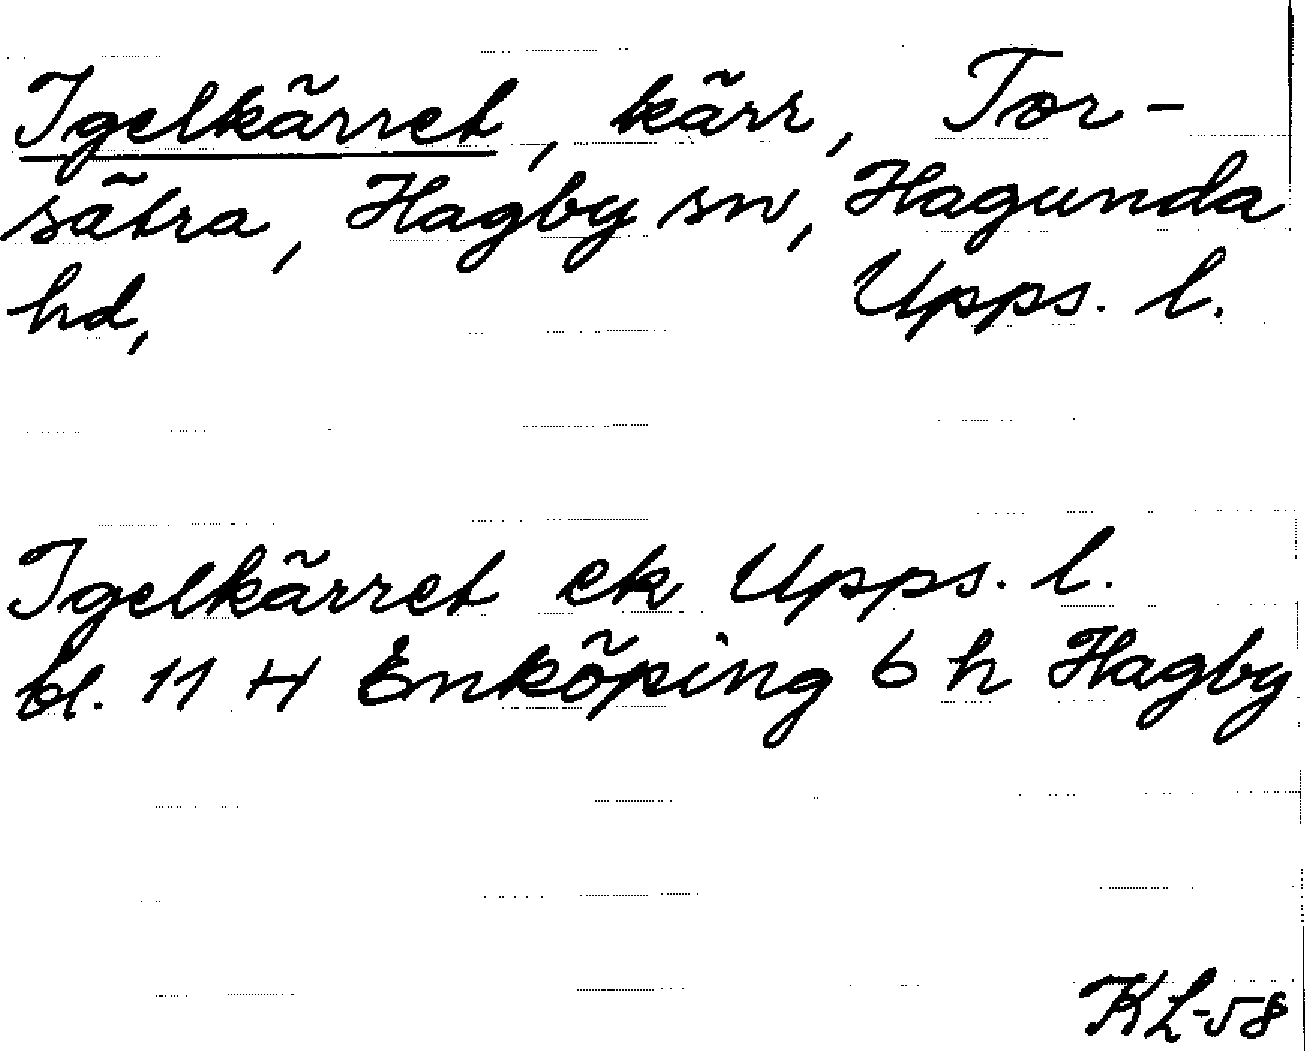 Igelkärret, kärr, Tor-
sätra, Hagby sn, Hagunda
hd, Upps. l.
Igelkärret ek Upps. l.
bl. 11 H Enköping 6 h Hagby
KL-58